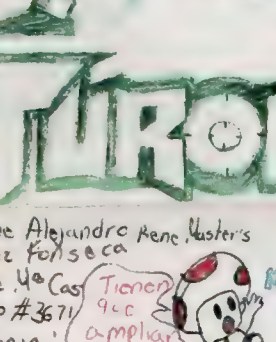 TURO
e Alejandro Rene Master's
z Fonseca
4º Cas
o #3671
Tienen
que
ampliar